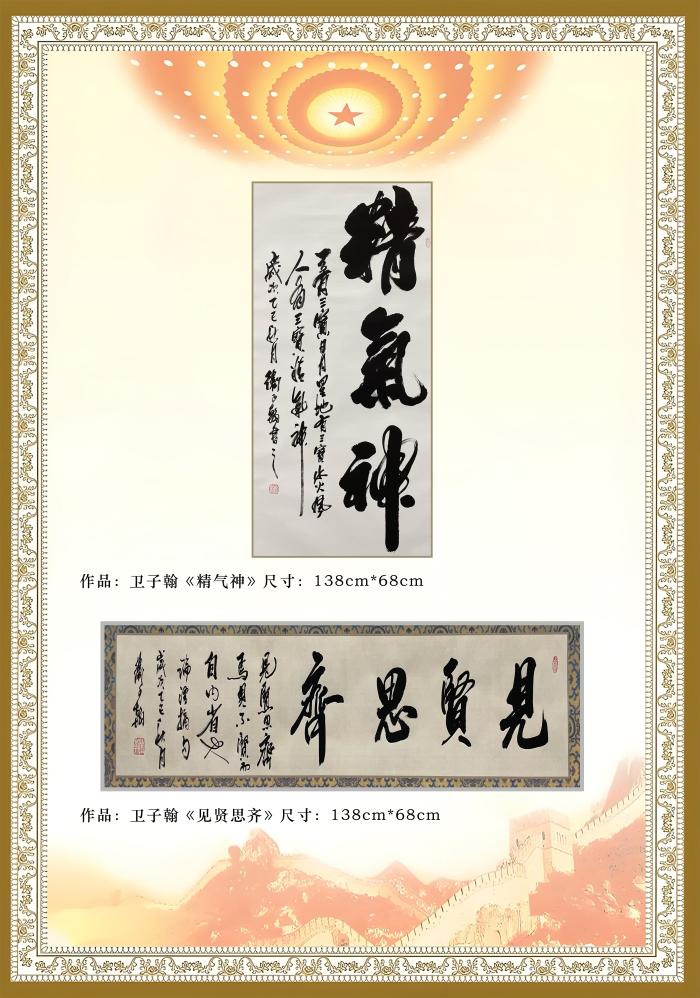 精
氣
神
天有三寶日月星地有三寶水火風
人有三寶精氣神
歲次乙巳秋月衛子翰書之
作品：卫子翰《精气神》尺寸：138cm*68cm
見賢思齊
見賢思齊
焉見不賢而
自內省也
論語摘句
歲次乙巳秋月
衛子翰
作品：卫子翰《见贤思齐》尺寸：138cm*68cm